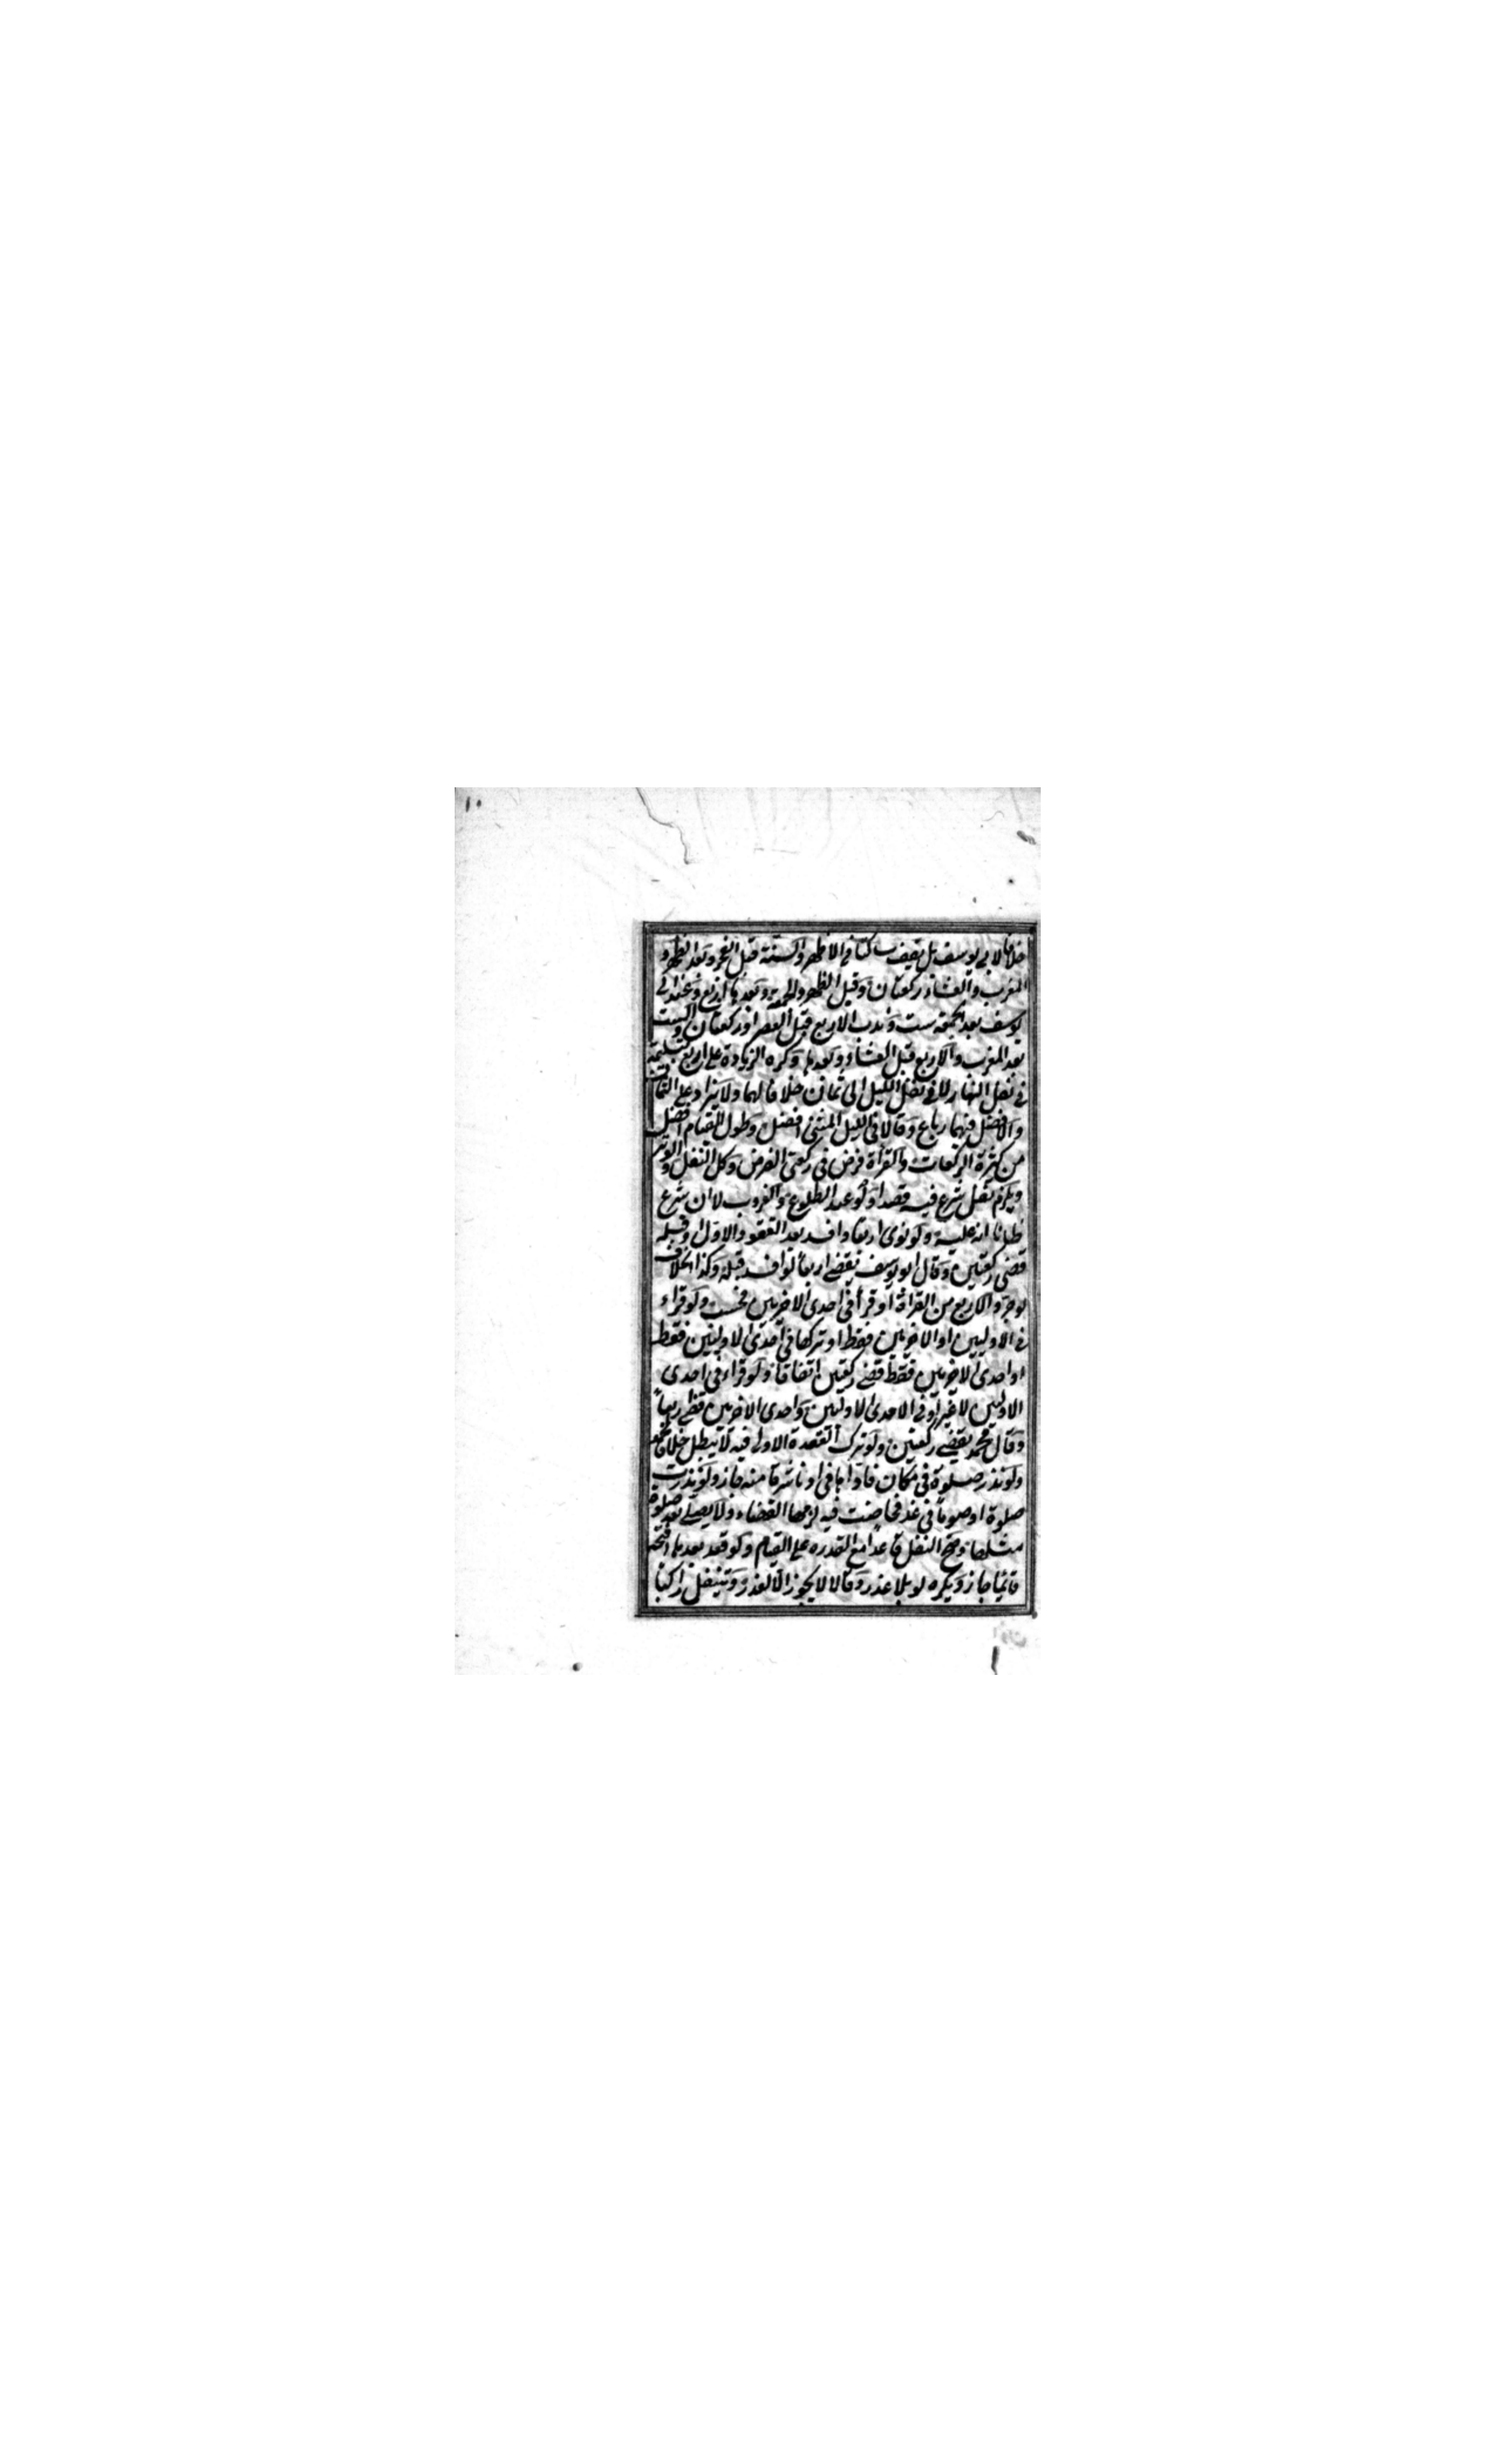 ١٠
خلافا لابي يوسف بل يقف ساكتا في الاظهر والسنة قبل الفجر وبعد الظهر و
المغرب والعشاء ركعتان وقبل الظهر والجمعة وبعدها اربع وعند ابي
يوسف بعد الجمعة ست وندب الاربع قبل العصر او ركعتان والست
بعد المغرب والاربع قبل العشاء وبعدها وكره الزيادة على اربع بتسليمة
في نفل النهار لا في نفل الليل الى ثمان خلافا لهما ولا يزاد على الثمان
والافضل فيهما رباع وقالا في الليل المثنى افضل وطول القيام افضل
من كثرة الركعات والقرأة فرض في ركعتي الفرض وكل النفل والوتر
ويلزم نفل شرع فيه قصدا ولو عند الطلوع والغروب لا ان شرع
ظانا انه عليه ولو نوى اربعا وافسد بعد القعود الاول او قبله
قضى ركعتين وقال ابو يوسف يقضي اربعا لو افسد قبله وكذا الخلاف
لو جرد الاربع من القراءة او قرأ في احدى الاخريين فحسب ولو قراء
في الاوليين او الاخريين فقط او تركها في احدى الاوليين فقط
او احدى الاخريين فقط قضى ركعتين اتفاقا ولو قراء في احدى
الاوليين لا غير او في الاحدى الاوليين واحدى الاخريين قضى اربعا
وقال محمد يقضي ركعتين ولو ترك القعدة الاولى فيه لا يبطل خلافا لمحمد
ولو نذر صلوة في مكان فاداها في ادنا شرفا منه جاز ولو نذرت
صلوة او صوما في غد فحاضت فيه لزمها القضاء ولا يصلي بعد صلوة
مثلها وصح النفل قاعدا مع القدرة على القيام ولو قعد بعد ما افتتحه
قائما جاز ويكره لو بلا عذر وقالا لا يجوز الا لعذر ويتنفل راكبا